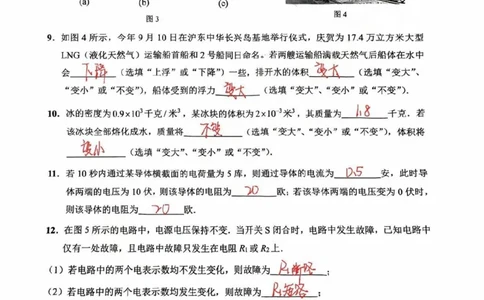 (a) (b) (c)
图3 图4
9. 如图4所示，今年9月10日在沪东中华长兴岛基地举行仪式，庆贺为17.4万立方米大型
LNG（液化天然气）运输船首船和2号船同日命名。若两艘运输船满载天然气后船体在水中
会 下降 （选填“上浮”或“下降”）一些，排开水的体积 变大 （选填“变大”、
“变小”或“不变”），船体受到的浮力 变大 （选填“变大”、“变小”或“不变”）。
10. 冰的密度为0.9×10³千克/米³，某冰块的体积为2×10⁻³米³，其质量为 1.8 千克。若
该冰块全部熔化成水，质量将 不变 （选填“变大”、“变小”或“不变”），体积将
变小 （选填“变大”、“变小”或“不变”）。
11. 若10秒内通过某导体横截面的电荷量为5库，则通过导体的电流为 0.5 安，此时导
体两端的电压为10伏，则该导体的电阻为 20 欧；若该导体两端的电压变为0伏时，
则该导体的电阻为 20 欧。
12. 在图5所示的电路中，电源电压保持不变。当开关S闭合时，电路中发生故障，已知电路中
仅有一处故障，且电路中故障只发生在电阻R₁或R₂上。
（1）若电路中的两个电表示数均不发生变化，则故障为 R₁断路 ；
（2）若电路中的两个电表示数均发生变化，则故障为 R₁短路 ；